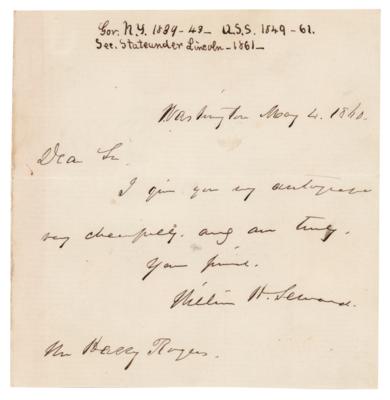 Gov. N.Y. 1839-43- U.S.S. 1849-61.
Sec. State under Lincoln-1861-
Washington May 4. 1860.
Dear Sir.
I give you my autograph
very cheerfully. and am truly.
Your friend.
William H. Seward.
Mr Harry Rogers.